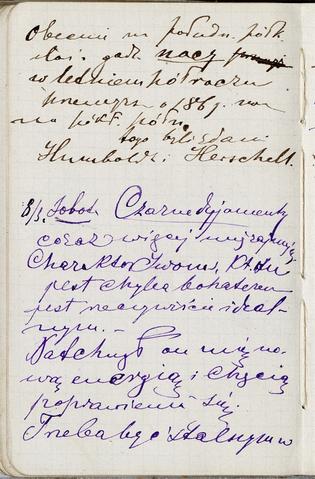 Obecni na połudn. półk
nacy
w letniem półroczu
na półk. półn.
tego byli zdani
Humboldt i Herschell.
8/3. Sobota Czarne dyjamenty
coraz więcej mię zajmują
Charakter Iwona,
jest chyba bohaterem
jest rzeczywiście ideal-
nym. —
Natchnął on mię no-
wą energią i chęcią
poprawienia się.
Trzeba być stałym w